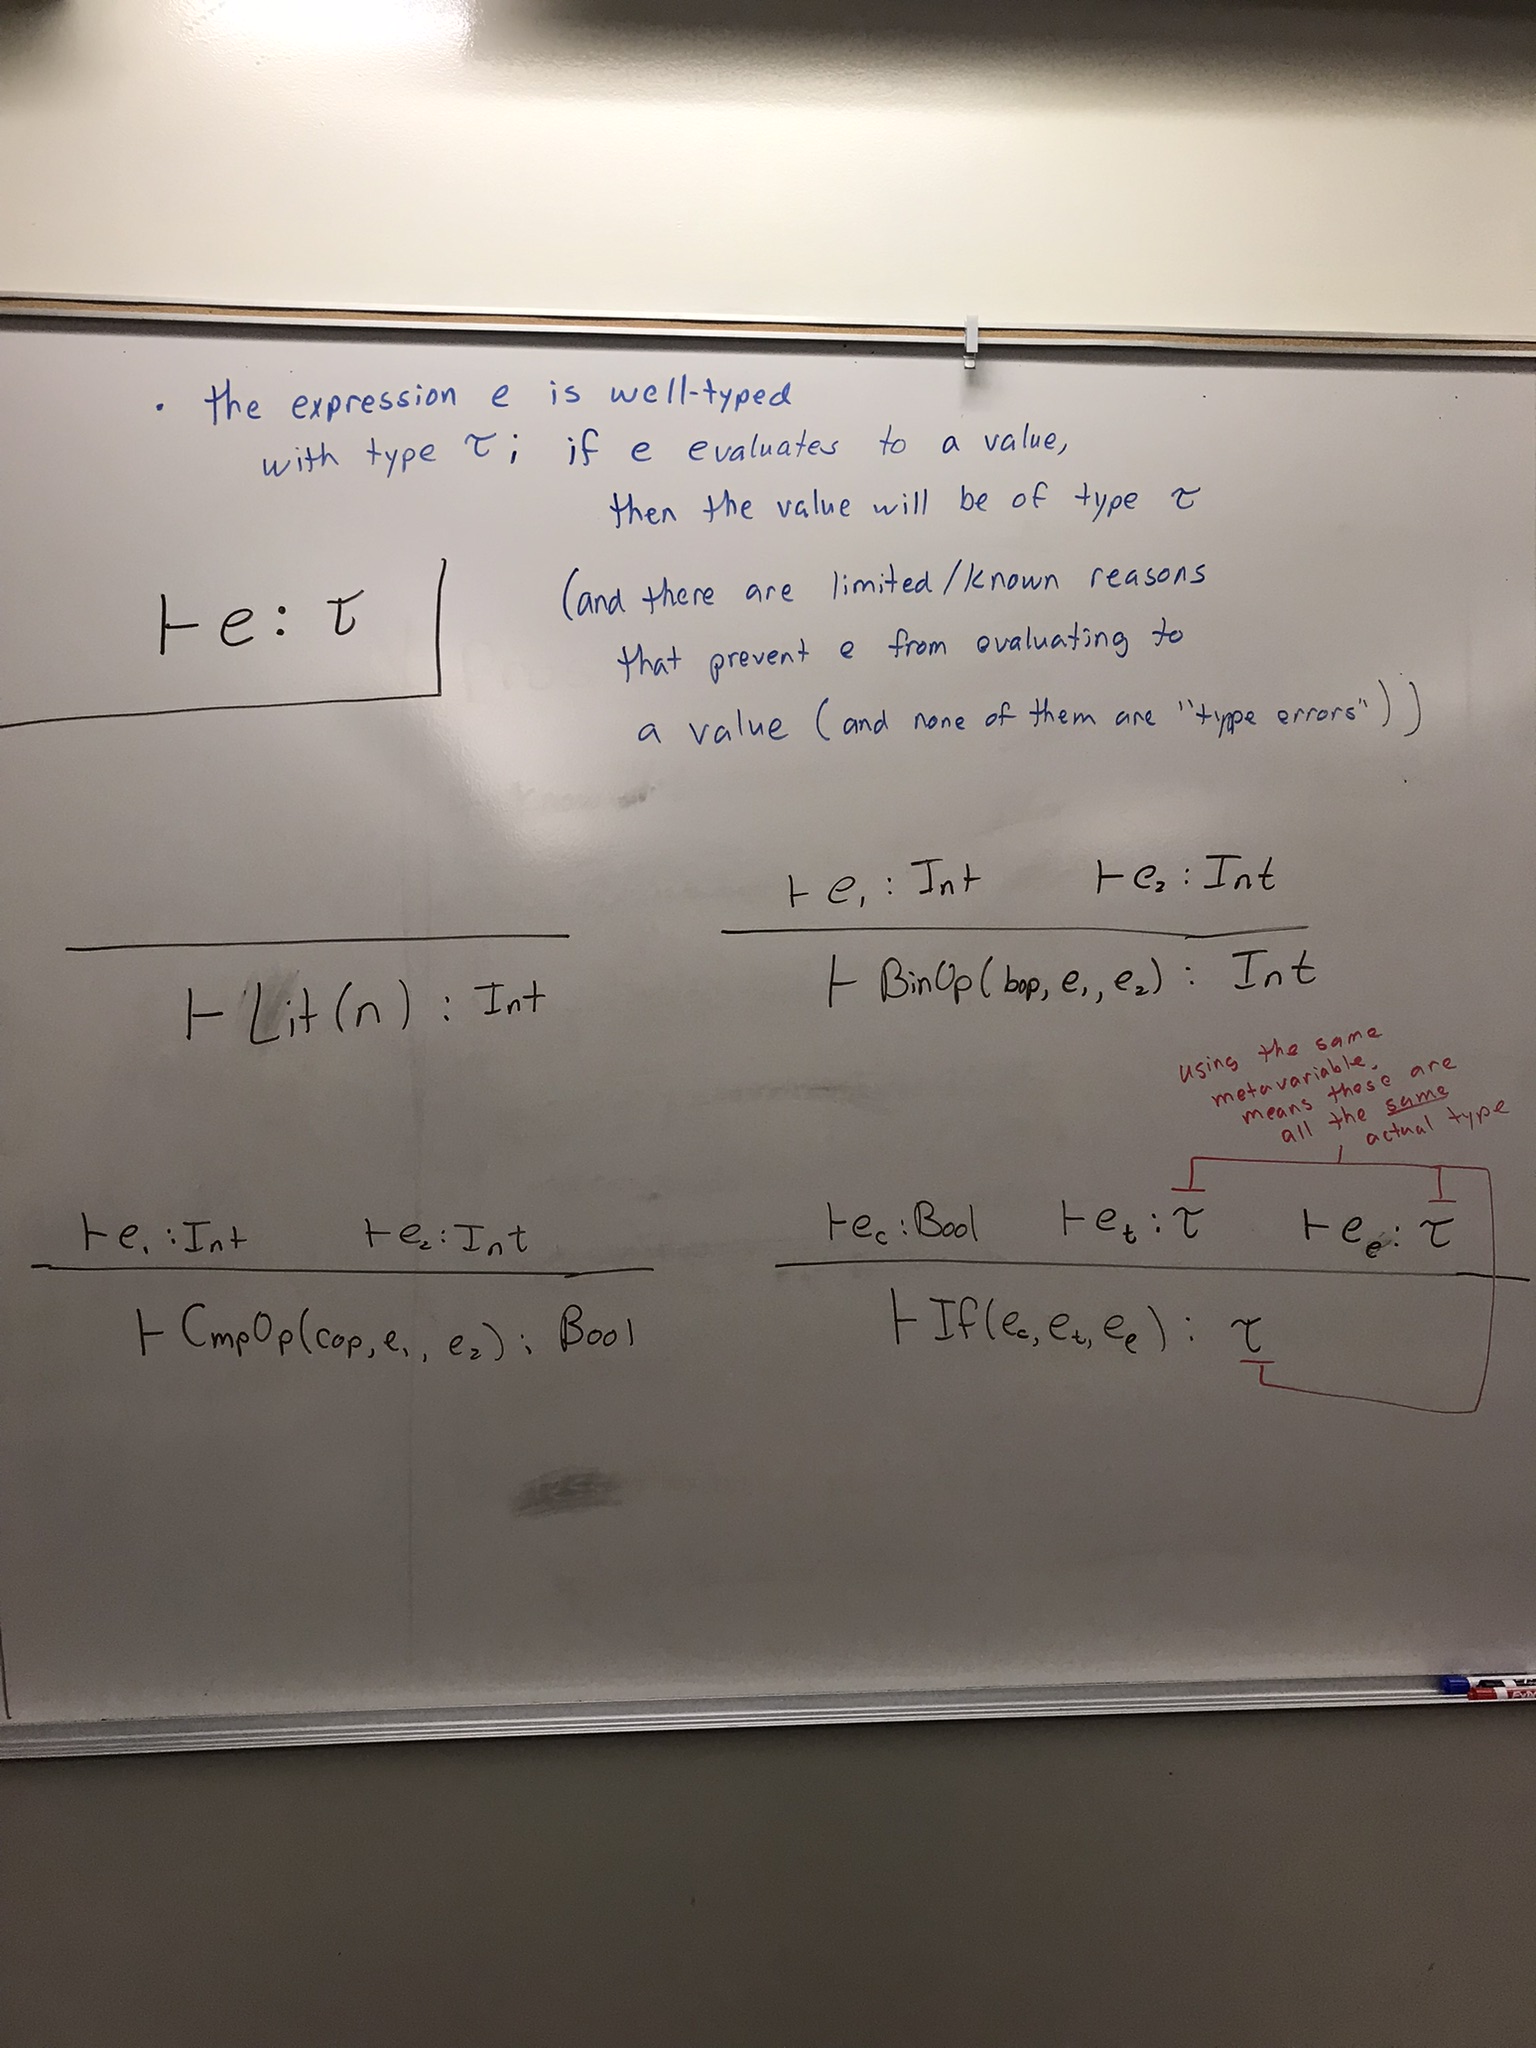 • the expression e is well-typed
with type τ; if e evaluates to a value,
then the value will be of type τ
⊢ e : τ
(and there are limited/known reasons
that prevent e from evaluating to
a value (and none of them are "type errors"))
⊢ Lit(n) : Int
⊢ e₁ : Int ⊢ e₂ : Int
⊢ BinOp(bop, e₁, e₂) : Int
using the same
metavariable
means these are
all the same
actual type
⊢ e₁ : Int ⊢ e₂ : Int
⊢ CmpOp(cop, e₁, e₂) : Bool
⊢ e꜀ : Bool ⊢ eₜ : τ ⊢ eₑ : τ
⊢ If(e꜀, eₜ, eₑ) : τ